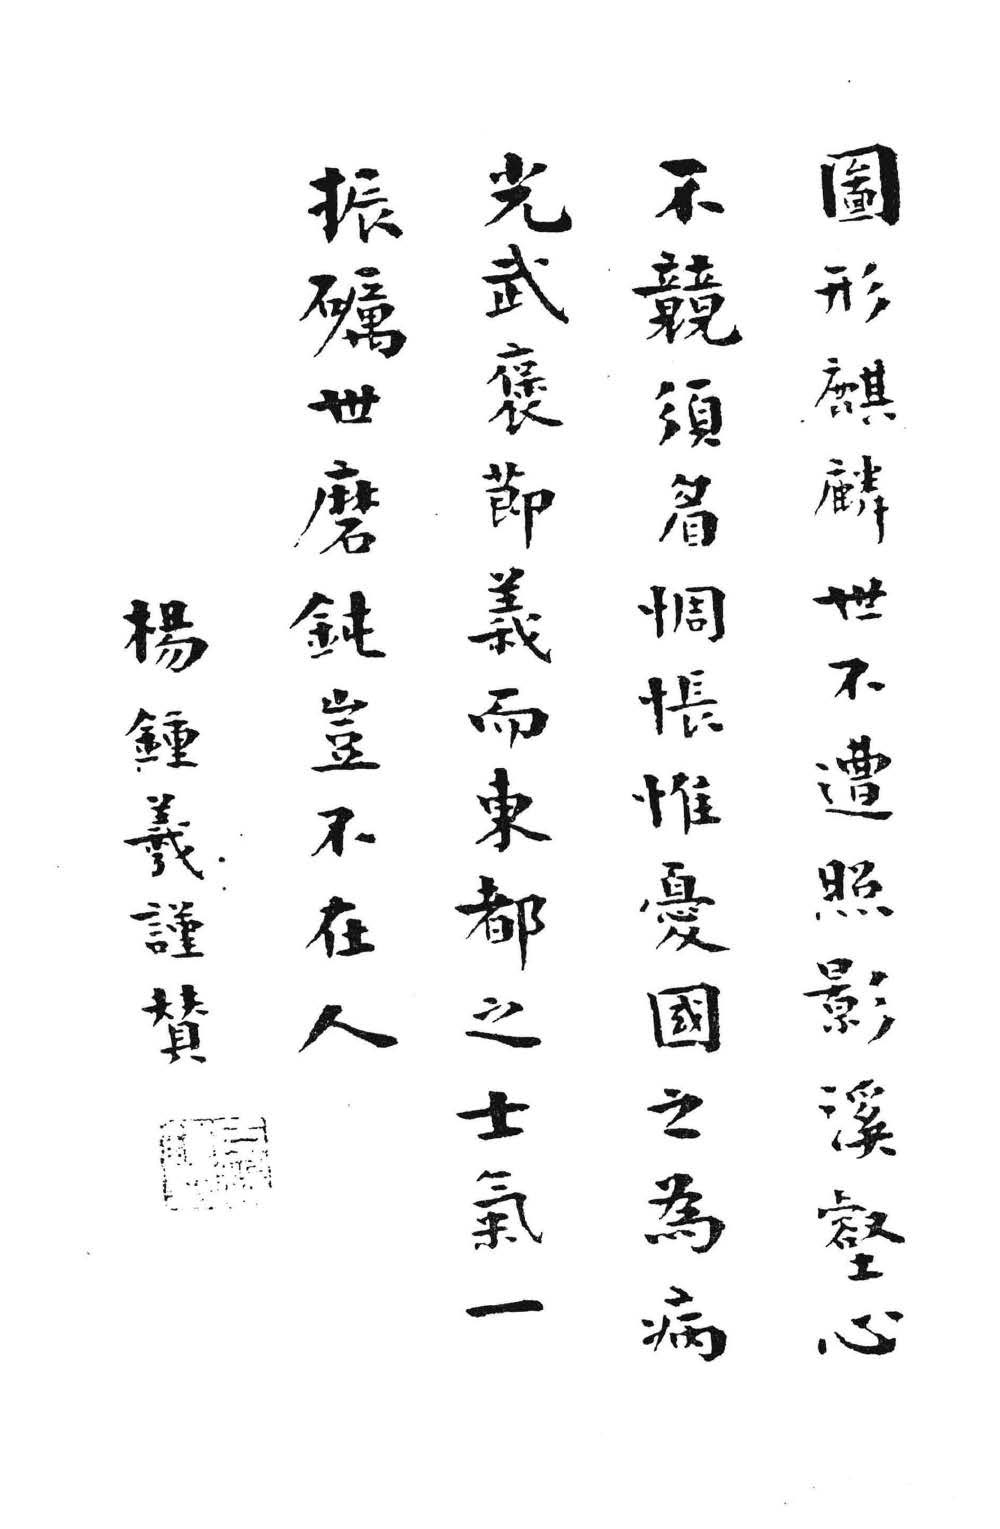 圖形麒麟世不遭照影溪壑心
不競須眉惆悵惟憂國之為病
光武褒節義而東都之士氣一
振礪世磨鈍豈不在人
楊鍾羲謹贊